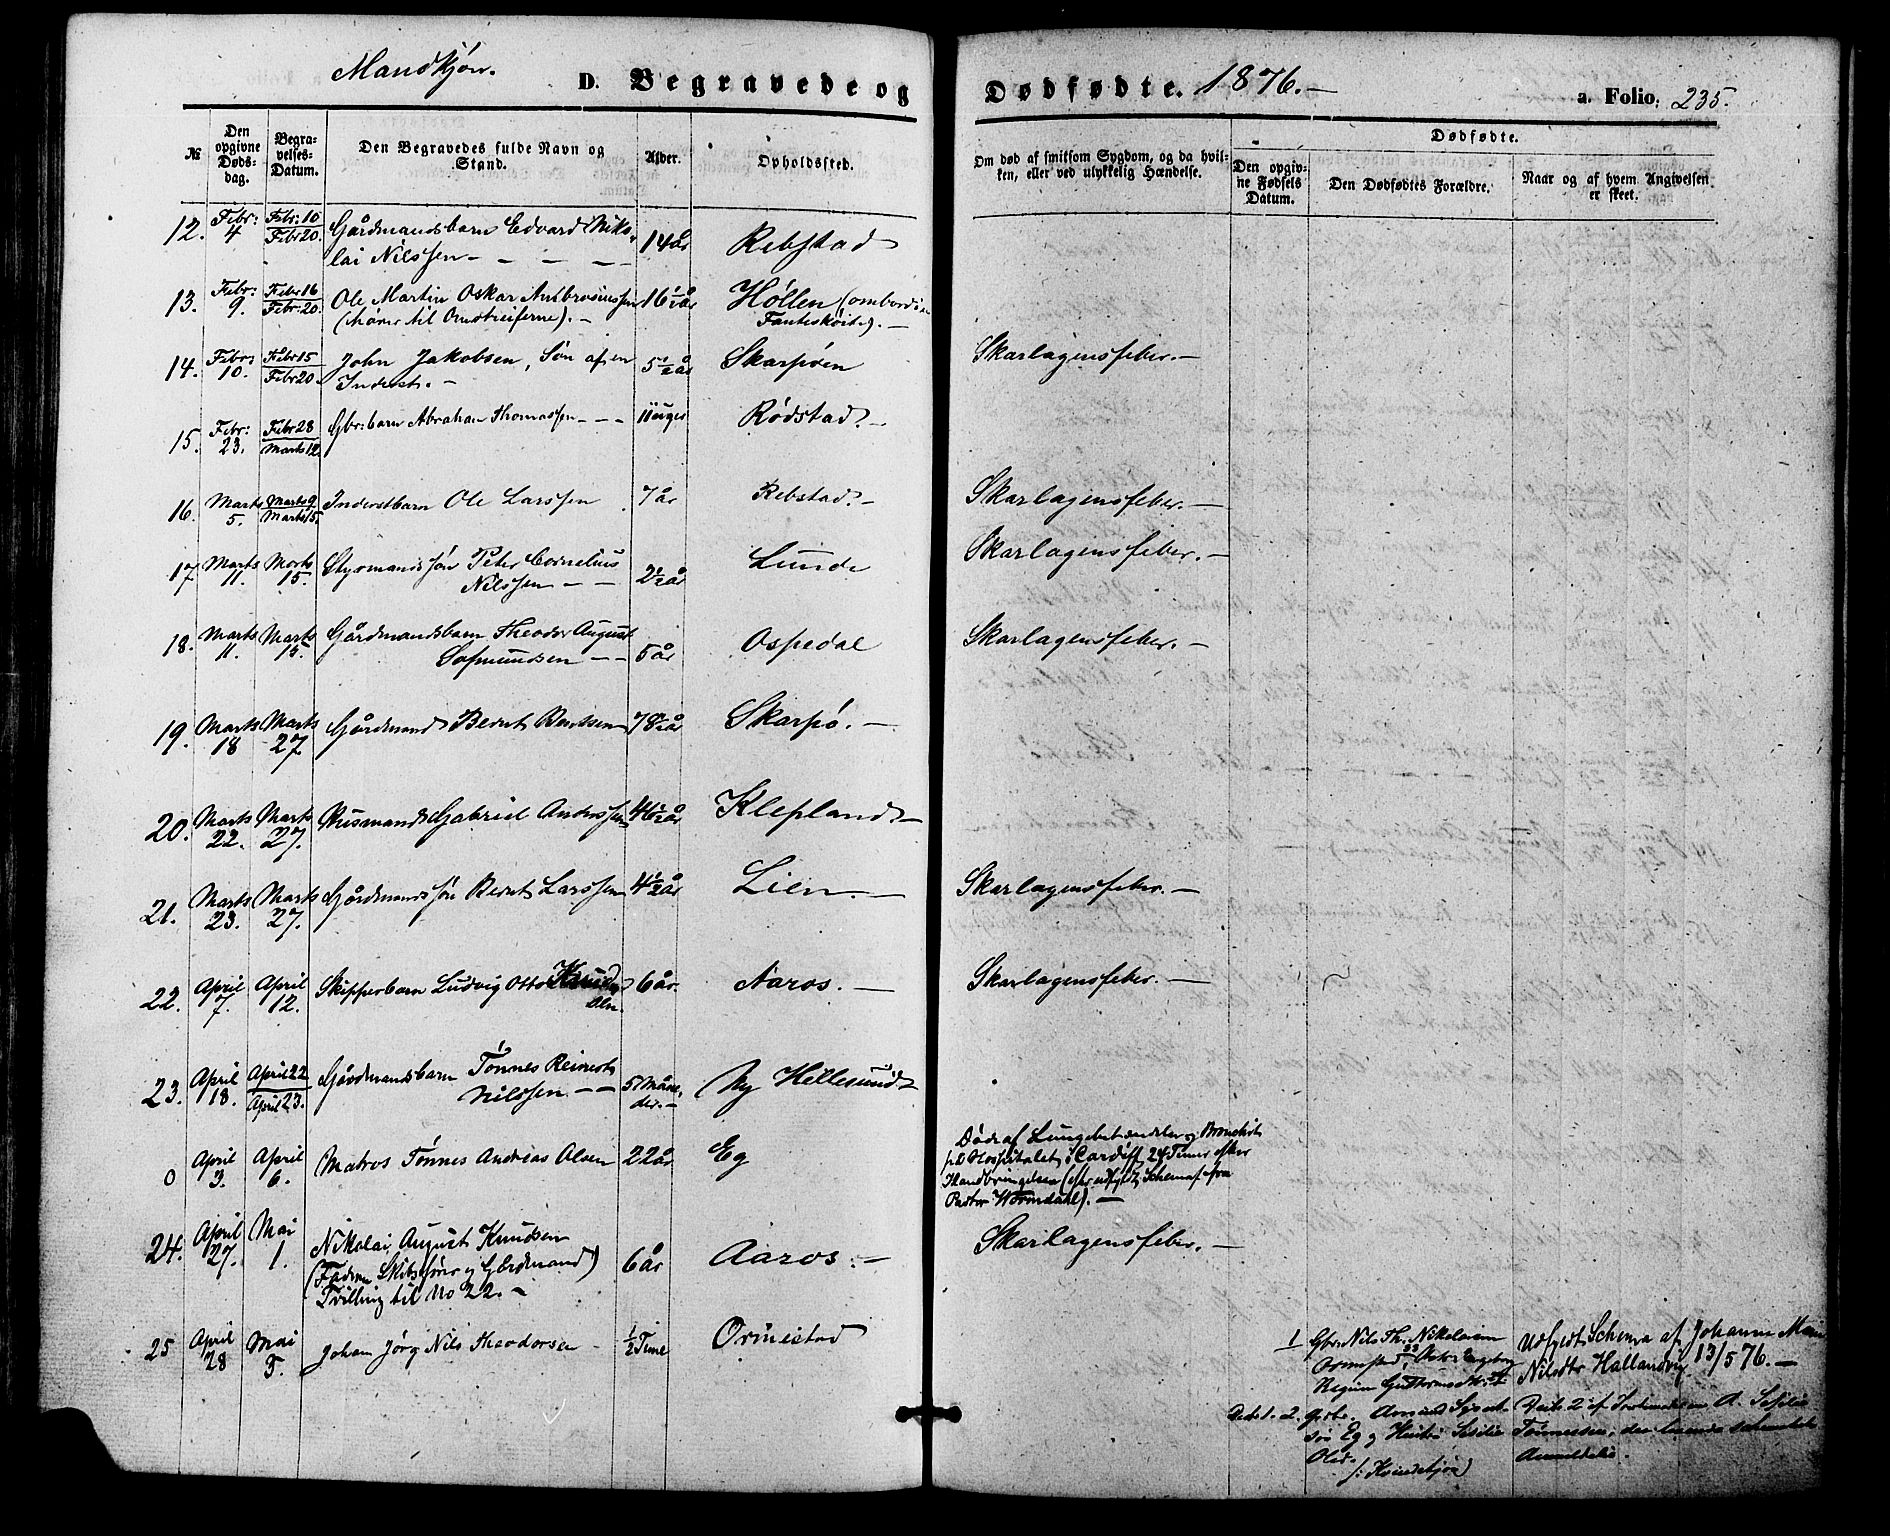 Mandkjøn.
D. Begravede og
Dødfødte. 1876.—
a. Folio: 235.
№
Den opgivne Døds-dag.
Begra-velses-Datum.
Den Begravedes fulde Navn og Stand.
Alder.
Opholdssted.
Om død af smitsom Sygdom, og da hvil-ken, eller ved ulykkelig Hændelse.
Dødfødte.
Den opgiv-ne Fødsels Datum.
Den Dødfødtes Forældre.
Naar og af hvem Angivelsen er skeet.
12. Febr: 4 Febr: 10 Febr 20. Gårdmandsbarn Edvard Niko- 14 år Rebstad
lai Nilssen — — — —
13. Febr: 9. Febr 16 Febr: 20. Ole Martin Oskar Ambrosiussen 16½ år Høllen (ombord i en
(hører til Omstreiferne).— Fanteskøite).—
14. Febr: 10. Febr 15 Febr 20. John Jakobsen, Søn af en 5½ år Skarpøen Skarlagensfeber.—
Inderst.—
15. Febr: 23. Febr 28 Marts 12. Gbr: barn Abraham Thomassen — — — 11 uger Rødstad.—
16. Marts 5. Marts 9 Marts 15. Inderstbarn Ole Larssen 7 år Rebstad.— Skarlagensfeber.—
17 Marts 11. Marts 15. Styrmandssøn Peter Cornelius 2½ år Lunde Skarlagensfeber.—
Nilssen — —
18. Marts 11. Marts 15. Gårdmandsbarn Theodor August 5 år Ospedal Skarlagensfeber.—
Salmundsen — —
19. Marts 18 Marts 27 Gårdmand Bernt Berntsen 78½ år Skarpø.—
20. Marts 22. Marts 27. Husmand Gabriel Anderssen 46½ år Klepland—
21. Marts 23. Marts 27. Gårdmandssøn Bernt Larssen 4½ år Lien.— Skarlagensfeber.—
22. April 7. April 12. Skipperbarn Ludvig Otto Knud 6 år. Aaros.— Skarlagensfeber.—
23. April 18. April 22 April 23. Gårdmandsbarn Tønnes Reinert 5 Måne- Ny Hellesund
Nilssen.— — der.—
0 April 3. April 6. Matros Tønnes Andreas Olsen 22 år Eg
Døde af Lungebetændelse og Bronchit
på Hospitalet i Cardiff 24 Timer efter
Ilandbringelsen (efter udfyldt Schema fra
Pastor Wormdahl).—
24. April 27. Mai 1. Nikolai August Knudsen 6 år Aaros.— Skarlagensfeber.—
(Faderen Skibsfører og Gårdmand)
Tvilling til No 22.—
25 April 28 Mai 5. Johan Jørg Nils Theodorsen ½ Time Ormestad
1 Gbr: Nils Th. Nikolaisen
Udfyldt Schema af Johanne Marie
Nilsdtr Hallandvig 13/5 76.—
2. Gdbr. Aanund
Eg og Hustru Sesilie
Olsd.
(: Kvindekjøn)
Tønnessen,
Anmeldelse.